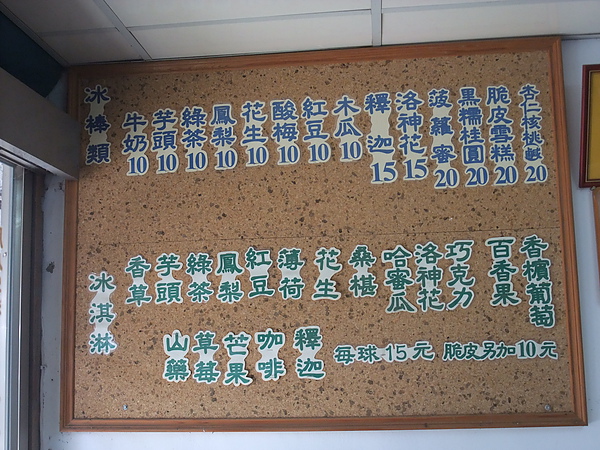 冰棒類
牛奶10
芋頭10
綠茶10
鳳梨10
花生10
酸梅10
紅豆10
木瓜10
釋迦15
洛神花15
菠蘿蜜20
黑糯桂圓20
脆皮雪糕20
杏仁核桃
20
冰淇淋
香草
芋頭
綠茶
鳳梨
紅豆
薄荷
花生
桑椹
哈蜜瓜
洛神花
巧克力
百香果
香檳葡萄
山藥
草莓
芒果
咖啡
釋迦
每球15元
脆皮另加10元